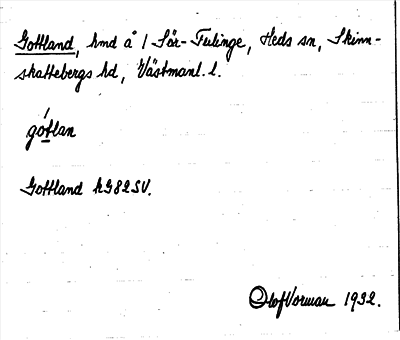 Gottland, hmd å 1 Sör-Fulinge, Heds sn, Skinn-
skattebergs hd, Västmanl. l.
gótlan
Gottland kG82SV.
Olof Vorman 1932.